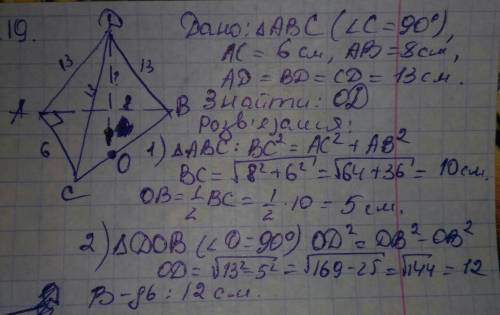 19.
Дано: △ABC (∠C = 90°),
AC = 6 см, AB = 8 см,
AD = BD = CD = 13 см.
Знайти: OD
Розв'язання:
1) △ABC: BC² = AC² + AB²
BC = √8² + 6² = √64 + 36 = 10 см.
OB = 1/2 BC = 1/2 · 10 = 5 см.
2) △DOB (∠O = 90°) OD² = DB² - OB²
OD = √13² - 5² = √169 - 25 = √144 = 12
В-дь: 12 см.
D
13
13
13
A
B
6
C
O